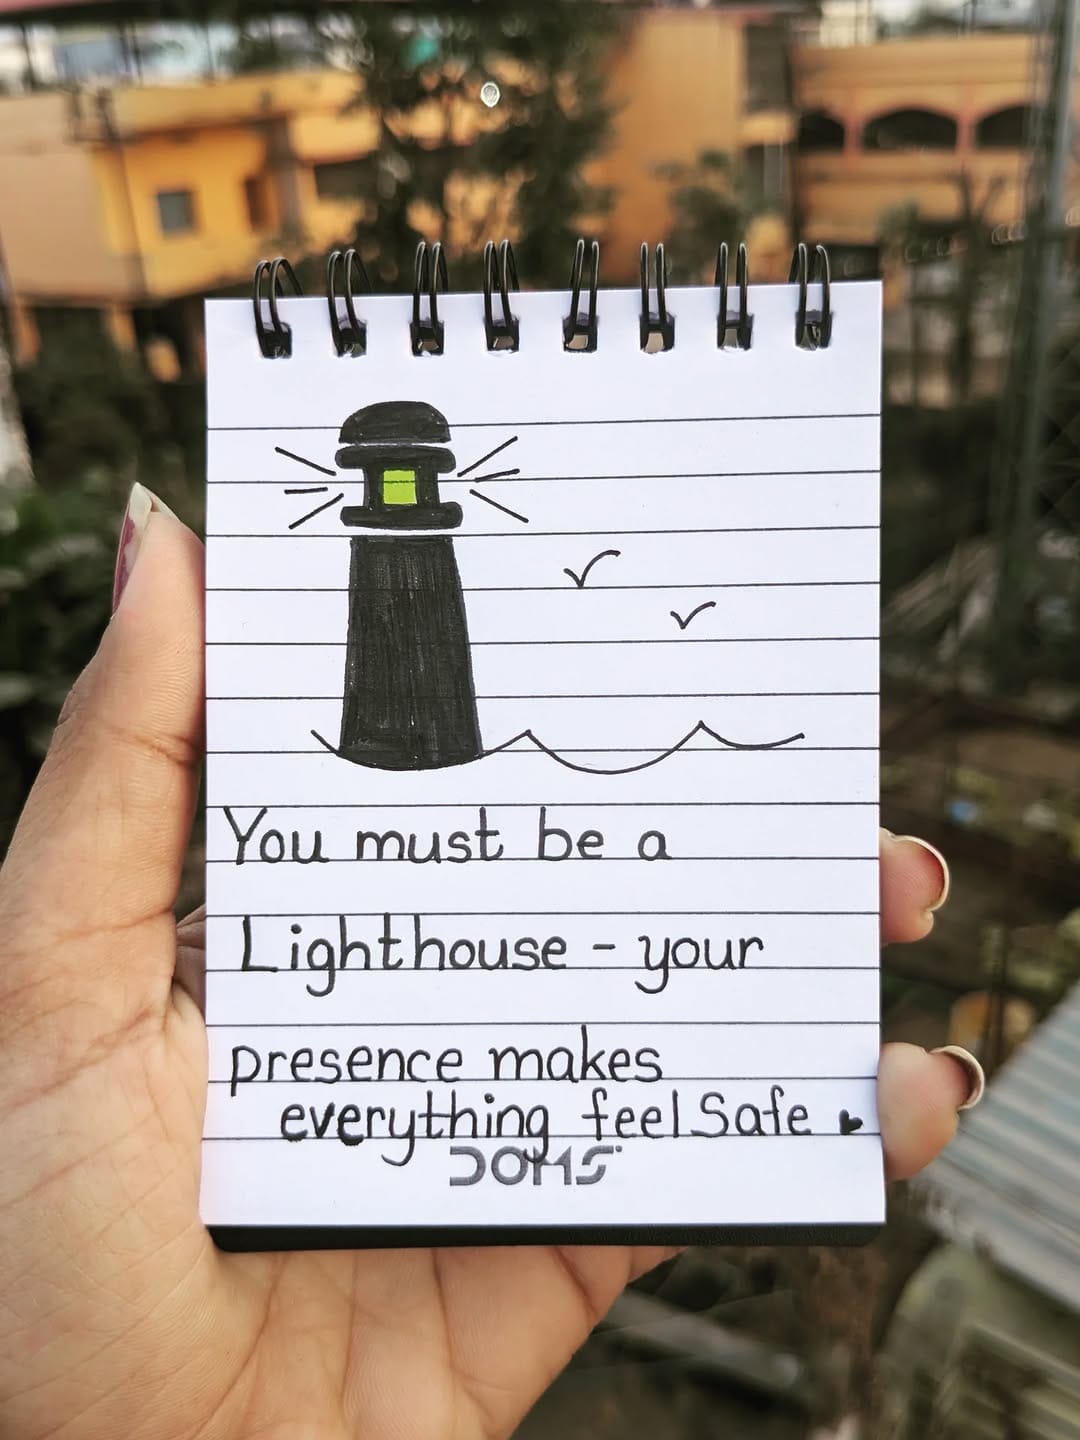 You must be a
Lighthouse - your
presence makes
everything feel Safe
DOMS